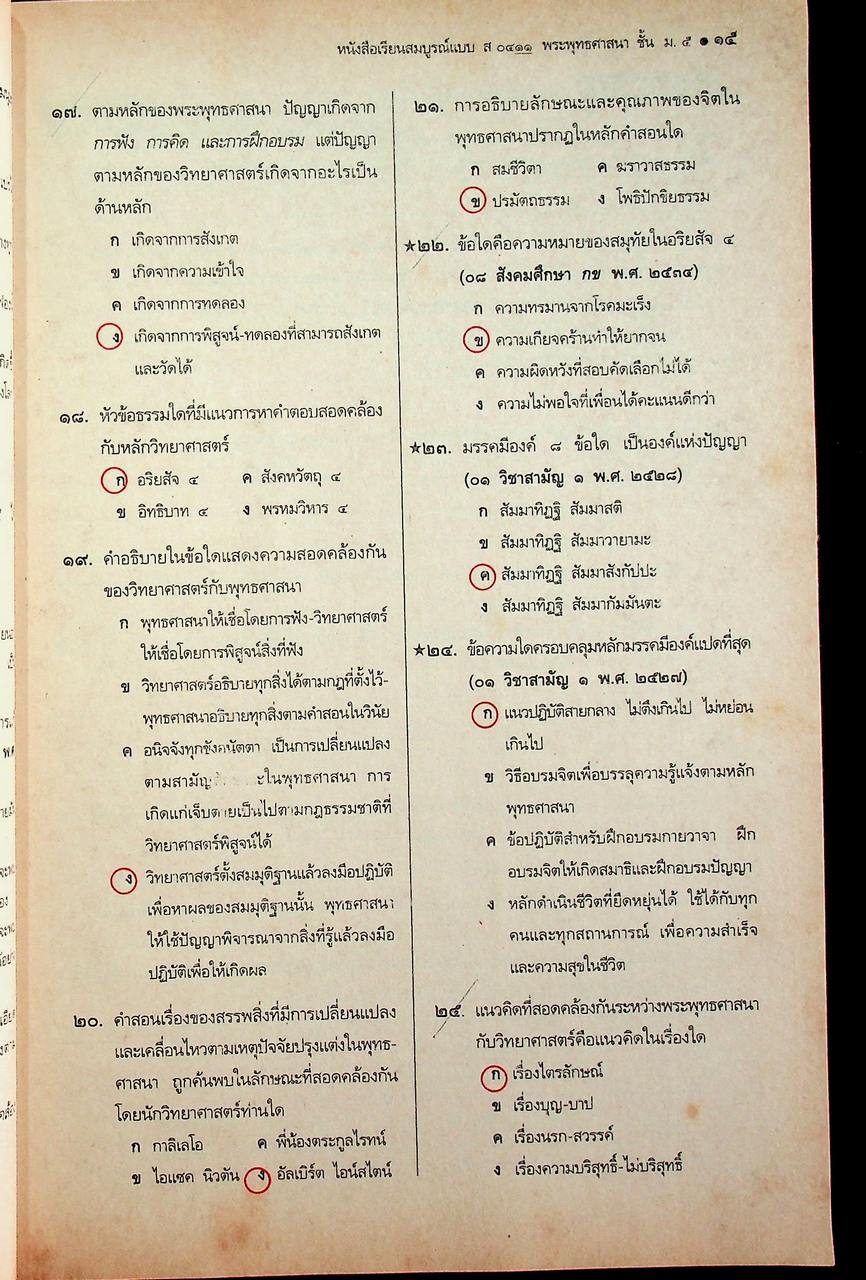 หนังสือเรียนสมบูรณ์แบบ ส ๐๔๑๑ พระพุทธศาสนา ชั้น ม. ๕ ● ๑๕
๑๗. ตามหลักของพระพุทธศาสนา ปัญญาเกิดจาก
การฟัง การคิด และการฝึกอบรม แต่ปัญญา
ตามหลักของวิทยาศาสตร์เกิดจากอะไรเป็น
ด้านหลัก
ก เกิดจากการสังเกต
ข เกิดจากความเข้าใจ
ค เกิดจากการทดลอง
ง เกิดจากการพิสูจน์-ทดลองที่สามารถสังเกต
และวัดได้
๑๘. หัวข้อธรรมใดที่มีแนวการหาคำตอบสอดคล้อง
กับหลักวิทยาศาสตร์
ก อริยสัจ ๔ ค สังคหวัตถุ ๔
ข อิทธิบาท ๔ ง พรหมวิหาร ๔
๑๙. คำอธิบายในข้อใดแสดงความสอดคล้องกัน
ของวิทยาศาสตร์กับพุทธศาสนา
ก พุทธศาสนาให้เชื่อโดยการฟัง-วิทยาศาสตร์
ให้เชื่อโดยการพิสูจน์สิ่งที่ฟัง
ข วิทยาศาสตร์อธิบายทุกสิ่งได้ตามกฎที่ตั้งไว้-
พุทธศาสนาอธิบายทุกสิ่งตามคำสอนในวินัย
ค อนิจจังทุกขังอนัตตา เป็นการเปลี่ยนแปลง
ในพุทธศาสนา การ
เกิดแก่เจ็บตายเป็นไปตามกฎธรรมชาติที่
วิทยาศาสตร์พิสูจน์ได้
ง วิทยาศาสตร์ตั้งสมมุติฐานแล้วลงมือปฏิบัติ
เพื่อหาผลของสมมุติฐานนั้น พุทธศาสนา
ให้ใช้ปัญญาพิจารณาจากสิ่งที่รู้แล้วลงมือ
ปฏิบัติเพื่อให้เกิดผล
๒๐. คำสอนเรื่องของสรรพสิ่งที่มีการเปลี่ยนแปลง
และเคลื่อนไหวตามเหตุปัจจัยปรุงแต่งในพุทธ-
ศาสนา ถูกค้นพบในลักษณะที่สอดคล้องกัน
โดยนักวิทยาศาสตร์ท่านใด
ก กาลิเลโอ ค พี่น้องตระกูลไรทน์
ข ไอแซค นิวตัน ง อัลเบิร์ต ไอน์สไตน์
๒๑. การอธิบายลักษณะและคุณภาพของจิตใน
พุทธศาสนาปรากฏในหลักคำสอนใด
ก สมชีวิตา ค ฆราวาสธรรม
ข ปรมัตถธรรม ง โพธิปักขิยธรรม
★๒๒. ข้อใดคือความหมายของสมุทัยในอริยสัจ ๔
(๐๘ สังคมศึกษา กข พ.ศ. ๒๕๓๔)
ก ความทรมานจากโรคมะเร็ง
ข ความเกียจคร้านทำให้ยากจน
ค ความผิดหวังที่สอบคัดเลือกไม่ได้
ง ความไม่พอใจที่เพื่อนได้คะแนนดีกว่า
★๒๓. มรรคมีองค์ ๘ ข้อใด เป็นองค์แห่งปัญญา
(๐๑ วิชาสามัญ ๑ พ.ศ. ๒๕๒๘)
ก สัมมาทิฏฐิ สัมมาสติ
ข สัมมาทิฏฐิ สัมมาวายามะ
ค สัมมาทิฏฐิ สัมมาสังกัปปะ
ง สัมมาทิฏฐิ สัมมากัมมันตะ
★๒๔. ข้อความใดครอบคลุมหลักมรรคมีองค์แปดที่สุด
(๐๑ วิชาสามัญ ๑ พ.ศ. ๒๕๒๗)
ก แนวปฏิบัติสายกลาง ไม่ตึงเกินไป ไม่หย่อน
เกินไป
ข วิธีอบรมจิตเพื่อบรรลุความรู้แจ้งตามหลัก
พุทธศาสนา
ค ข้อปฏิบัติสำหรับฝึกอบรมกายวาจา ฝึก
อบรมจิตให้เกิดสมาธิและฝึกอบรมปัญญา
ง หลักดำเนินชีวิตที่ยืดหยุ่นได้ ใช้ได้กับทุก
คนและทุกสถานการณ์ เพื่อความสำเร็จ
และความสุขในชีวิต
๒๕. แนวคิดที่สอดคล้องกันระหว่างพระพุทธศาสนา
กับวิทยาศาสตร์คือแนวคิดในเรื่องใด
ก เรื่องไตรลักษณ์
ข เรื่องบุญ-บาป
ค เรื่องนรก-สวรรค์
ง เรื่องความบริสุทธิ์-ไม่บริสุทธิ์